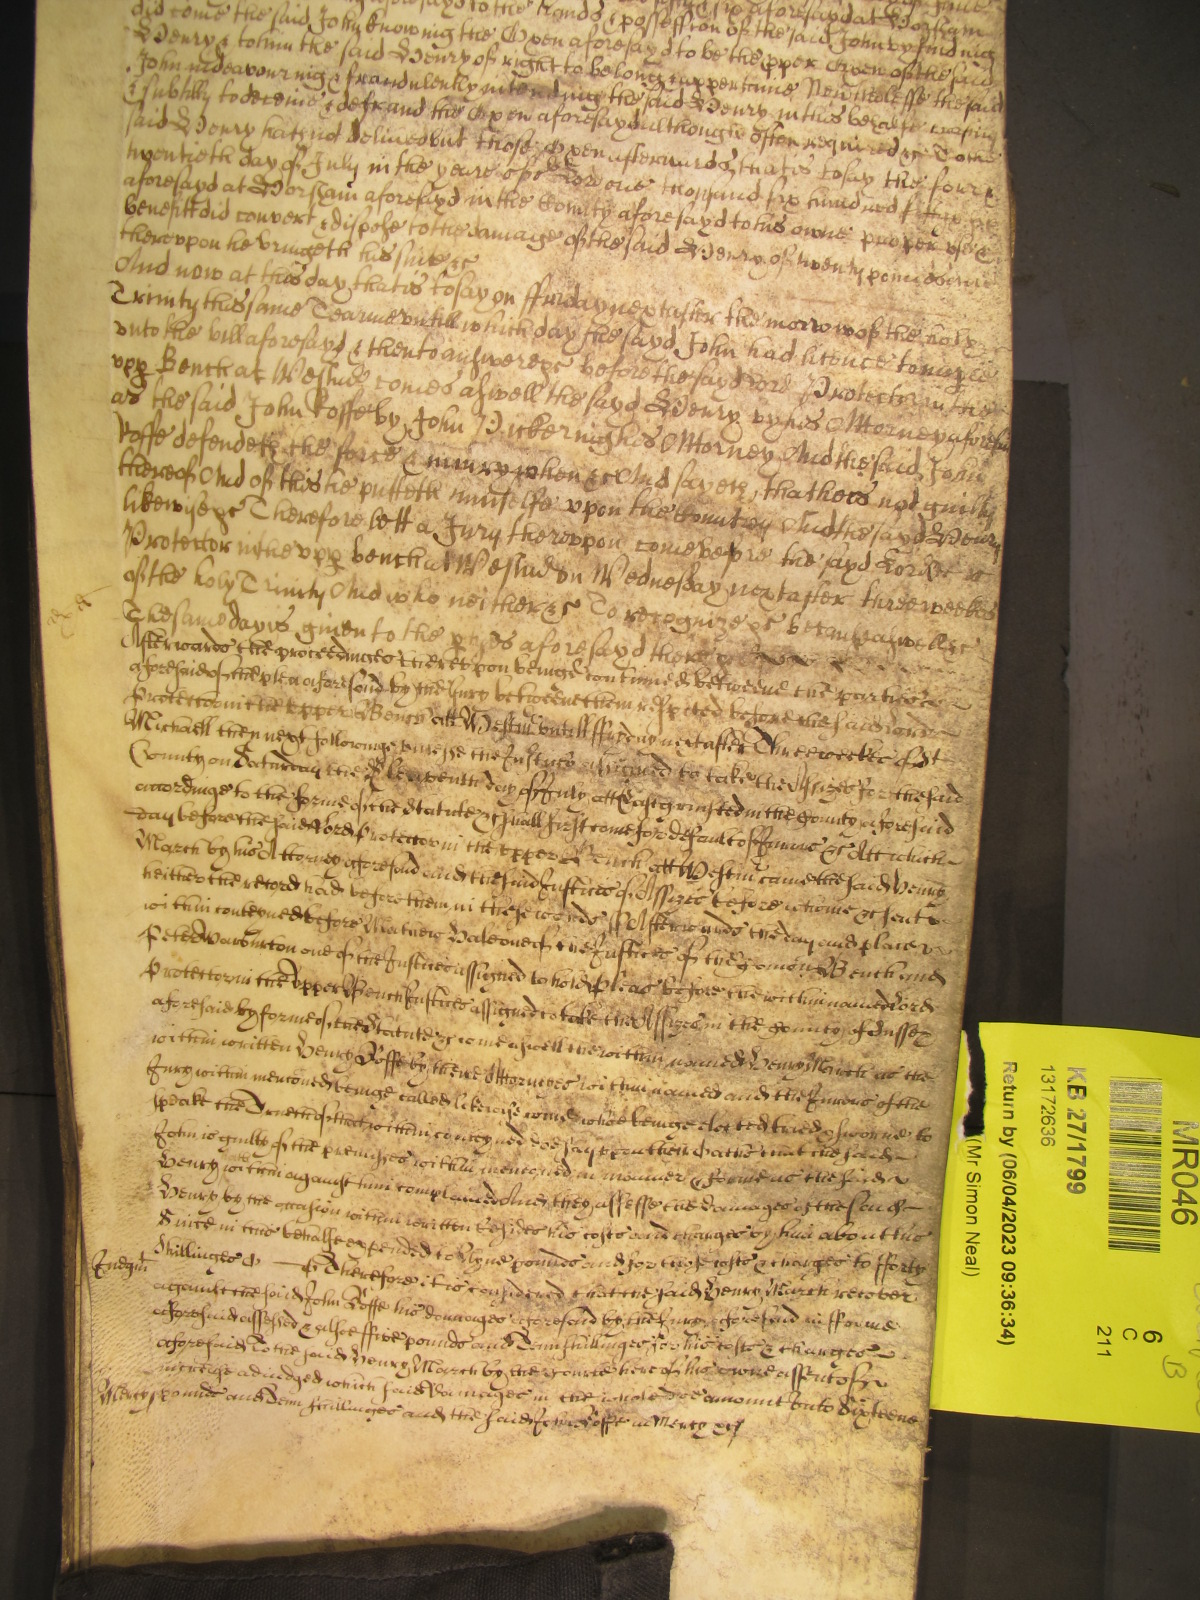 aforesayd to the hands & possession of the said John by finding
did come the said John knowing the Oxen aforesayd to be the pper Oxen of the said
Henry & to him the said Henry of right to belong & appertaine Neverthelesse the said
John indeavouring & fraudulently intending the said Henry in this behalfe
& subtilly to deceive & defraud the Oxen aforesayd although often required &c to the
said Henry hath not delivered but those Oxen afterwards that is to say the
twentieth day of July in the yeare of our Lord one thousand six hundred fifty
aforesayd at Horsham aforesayd in the County aforesayd to his owne proper use &
benefitt did convert & dispose to the damage of the said Henry of twenty pounds And
thereupon he bringeth his suite &c
And now at this day that is to say on ffriday next after the morrow of the holy
Trinity this same Tearme untill which day the sayd John had licence to imparle
unto the bill aforesayd & then to answere &c before the sayd Lord Protector in the
upp Bench at Westm comes aswell the sayd Henry by his Attorney aforesaid
as the said John Roffe by John Pickering his Attorney And the said John
Roffe defendeth the force & iniury when &c And sayeth that hee is not guilty
thereof And of this he putteth himselfe upon the Countrey And the sayd Henry
likewise &c Therefore lett a Jury thereupon come before the sayd Lord
Protector in the upp bench at Westm on Wednesday next after three weekes
of the holy Trinity And who neither &c To recognize &c because aswell &c
The same day is given to the pties aforesayd there &c
Afterwards the proceedinges thereupon beinge continued betweene the parties
aforesaid of the plea aforesaid by the Jury betweene them respited before the said Lord
Protector in the Upper Bench att Westm untill ffriday next after Three weekes of St
Michaell then next followinge unlesse the Justices assigned to take the Assizes for the said
County on Saturday the Eleaventh day of July att Eastgrinsted in the County aforesaid
accordinge to the forme of the Statute &c shall first come for default of Jurors &c Att which
day before the said Lord Protector in the Upper Bench att Westm came the said Henry
March by his Attorney aforesaid and the said Justices of Assizes before whome &c sent
heither the record had before them in these words ss Afterwards the day and place
within conteyned before Mathew Hale one of the Justices of the Comon Bench and
Peter Warburton one of the Justices assigned to hold Pleas before the within named Lord
Protector in the Upper Bench Justices assigned to take the Assizes in the County of Sussex
aforesaid by forme of the Statute &c come aswell the within named Henry March as the
within written Henry Roffe by there Attorneyes within named and the Jurors of the
Jury within mencioned beinge called likewise come whoe beinge elected tried & sworne to
speake the Trueth of that within conteyned doe say upon their Oathe that the said
John is guilty of the premisses within mencioned in manner & forme as the said
Henry within against him complained And they assesse the damages of the said
Henry by the occasion within written besides his costs and charges by him about his
Suite in this behalfe expended to Nyne pounds and for those costs & charges to fforty
Shillinges
Iudgmt
Therefore it is considered that the said Henry March recover
against the said John Roffe his damages aforesaid by the Jury aforesaid in fforme
aforesaid assessed & alsoe ffive pounds and Tenn shillinges for his costs & charges
aforesaid To the said Henry March by the Courte here of his owne assent of
increase adiudged which said Damages in the whole doe amount unto Sixteene
Mercy
pounds and Tenn shillinges and the said John Roffe in Mercy &c
MR046
KB 27/1799
13172636
Return by (06/04/2023 09:36:34)
(Mr Simon Neal)
6
C
211
B